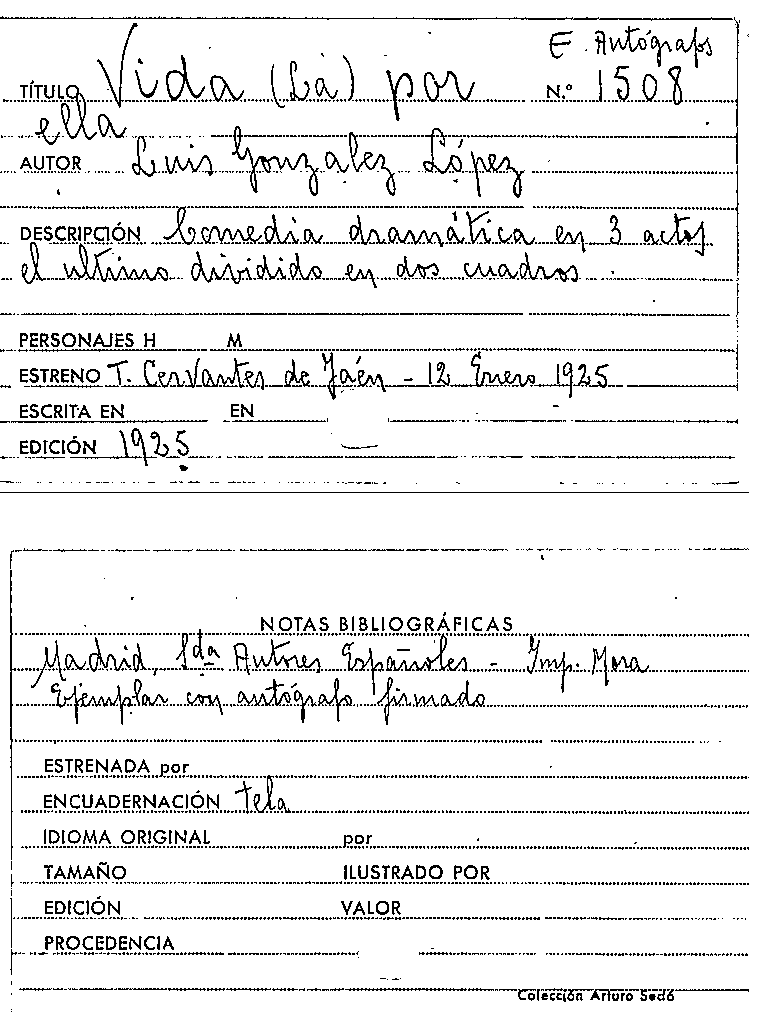 E. Autógrafs
TÍTULO Vida (La) por N.º 1508
ella
AUTOR Luis Gonzalez López
DESCRIPCIÓN Comedia dramática en 3 actos
el ultimo dividido en dos cuadros.
PERSONAJES H M
ESTRENO T. Cervantes de Jaén - 12 Enero 1925
ESCRITA EN EN
EDICIÓN 1925
NOTAS BIBLIOGRÁFICAS
Madrid, Sda Autores Españoles - Imp. Mora
Ejemplar con autógrafo firmado
ESTRENADA por
ENCUADERNACIÓN tela
IDIOMA ORIGINAL por
TAMAÑO ILUSTRADO POR
EDICIÓN VALOR
PROCEDENCIA
Colección Arturo Sedó